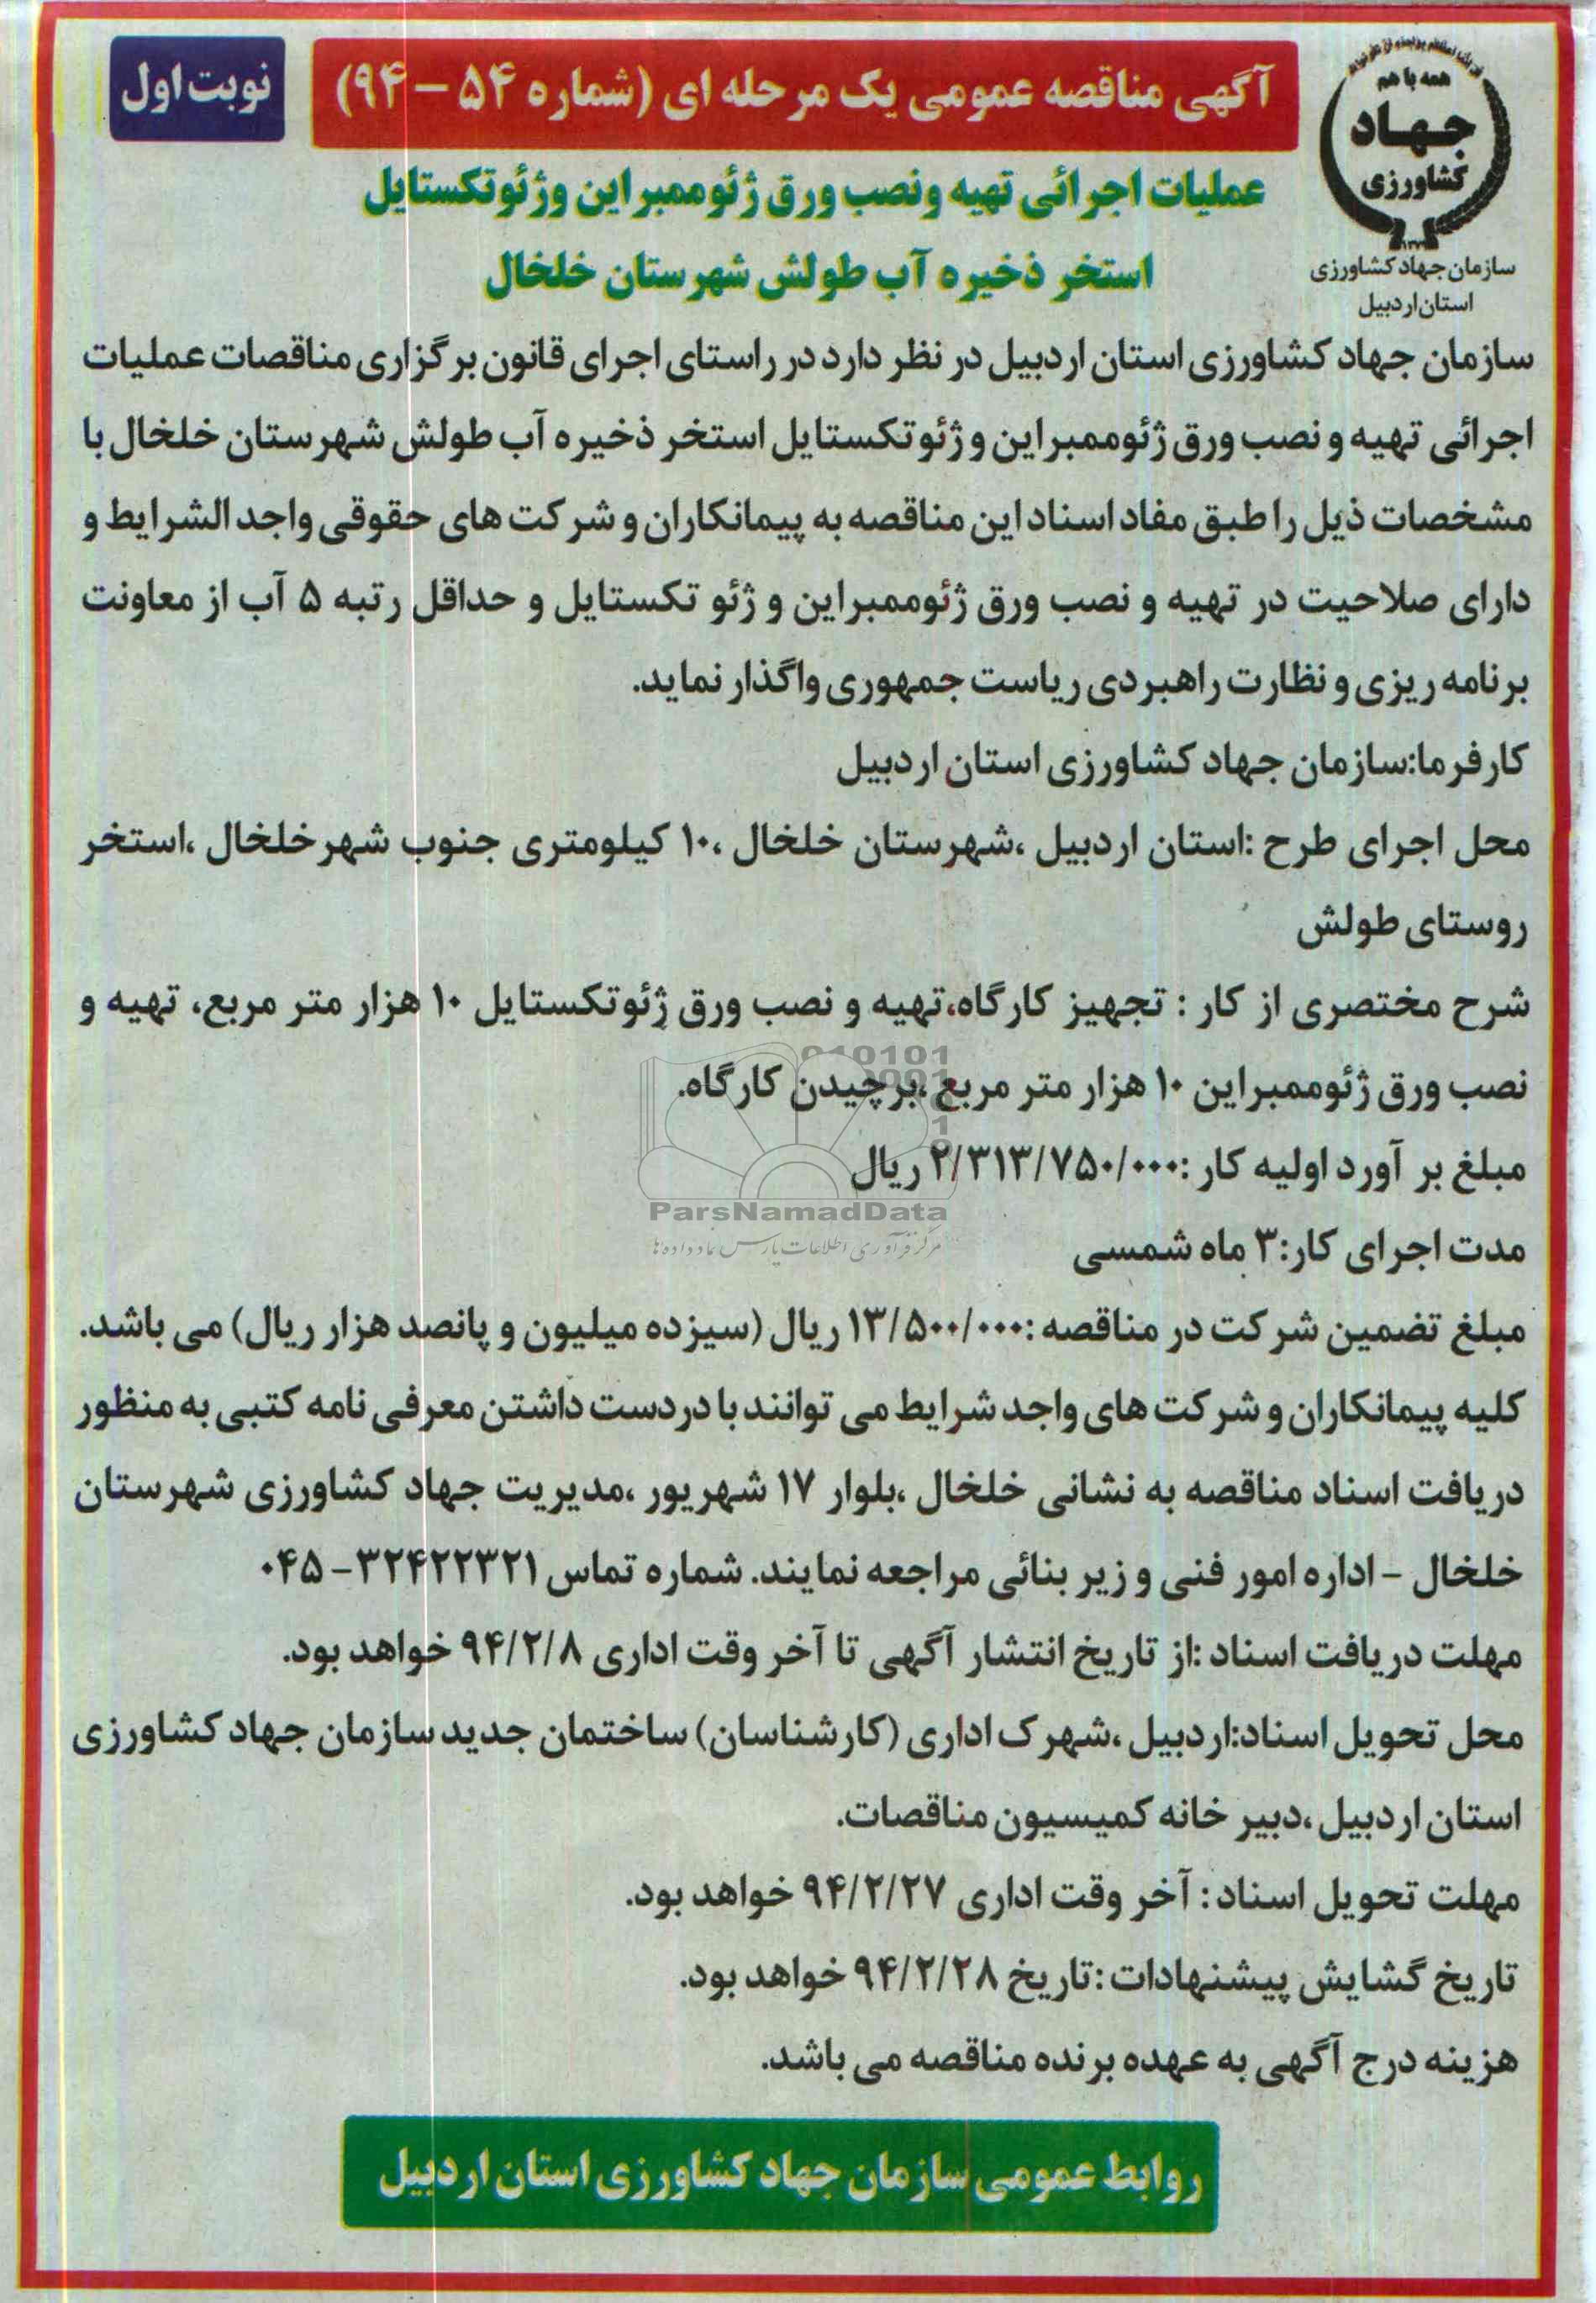 همه با هم
جهاد
کشاورزی
سازمان جهاد کشاورزی
استان اردبیل
آگهی مناقصه عمومی یک مرحله ای (شماره ۵۴ – ۹۴)
نوبت اول
عملیات اجرائی تهیه ونصب ورق ژئوممبراین وژئوتکستایل
استخر ذخیره آب طولش شهرستان خلخال
سازمان جهاد کشاورزی استان اردبیل در نظر دارد در راستای اجرای قانون برگزاری مناقصات عملیات
اجرائی تهیه و نصب ورق ژئوممبراین و ژئوتکستایل استخر ذخیره آب طولش شهرستان خلخال با
مشخصات ذیل را طبق مفاد اسناد این مناقصه به پیمانکاران و شرکت های حقوقی واجد الشرایط و
دارای صلاحیت در تهیه و نصب ورق ژئوممبراین و ژئو تکستایل و حداقل رتبه ۵ آب از معاونت
برنامه ریزی و نظارت راهبردی ریاست جمهوری واگذار نماید.
کارفرما:سازمان جهاد کشاورزی استان اردبیل
محل اجرای طرح :استان اردبیل ،شهرستان خلخال ،۱۰ کیلومتری جنوب شهرخلخال ،استخر
روستای طولش
شرح مختصری از کار : تجهیز کارگاه،تهیه و نصب ورق ژئوتکستایل ۱۰ هزار متر مربع، تهیه و
نصب ورق ژئوممبراین ۱۰ هزار متر مربع ،برچیدن کارگاه.
مبلغ بر آورد اولیه کار :۲/۳۱۳/۷۵۰/۰۰۰ ریال
ParsNamadData
مرکز فرآوری اطلاعات پارس نماد داده ها
مدت اجرای کار:۳ ماه شمسی
مبلغ تضمین شرکت در مناقصه :۱۳/۵۰۰/۰۰۰ ریال (سیزده میلیون و پانصد هزار ریال) می باشد.
کلیه پیمانکاران و شرکت های واجد شرایط می توانند با دردست داشتن معرفی نامه کتبی به منظور
دریافت اسناد مناقصه به نشانی خلخال ،بلوار ۱۷ شهریور ،مدیریت جهاد کشاورزی شهرستان
خلخال – اداره امور فنی و زیر بنائی مراجعه نمایند. شماره تماس ۳۲۴۲۲۳۲۱– ۰۴۵
مهلت دریافت اسناد :از تاریخ انتشار آگهی تا آخر وقت اداری ۹۴/۲/۸ خواهد بود.
محل تحویل اسناد:اردبیل ،شهرک اداری (کارشناسان) ساختمان جدید سازمان جهاد کشاورزی
استان اردبیل ،دبیر خانه کمیسیون مناقصات.
مهلت تحویل اسناد : آخر وقت اداری ۹۴/۲/۲۷ خواهد بود.
تاریخ گشایش پیشنهادات :تاریخ ۹۴/۲/۲۸ خواهد بود.
هزینه درج آگهی به عهده برنده مناقصه می باشد.
روابط عمومی سازمان جهاد کشاورزی استان اردبیل